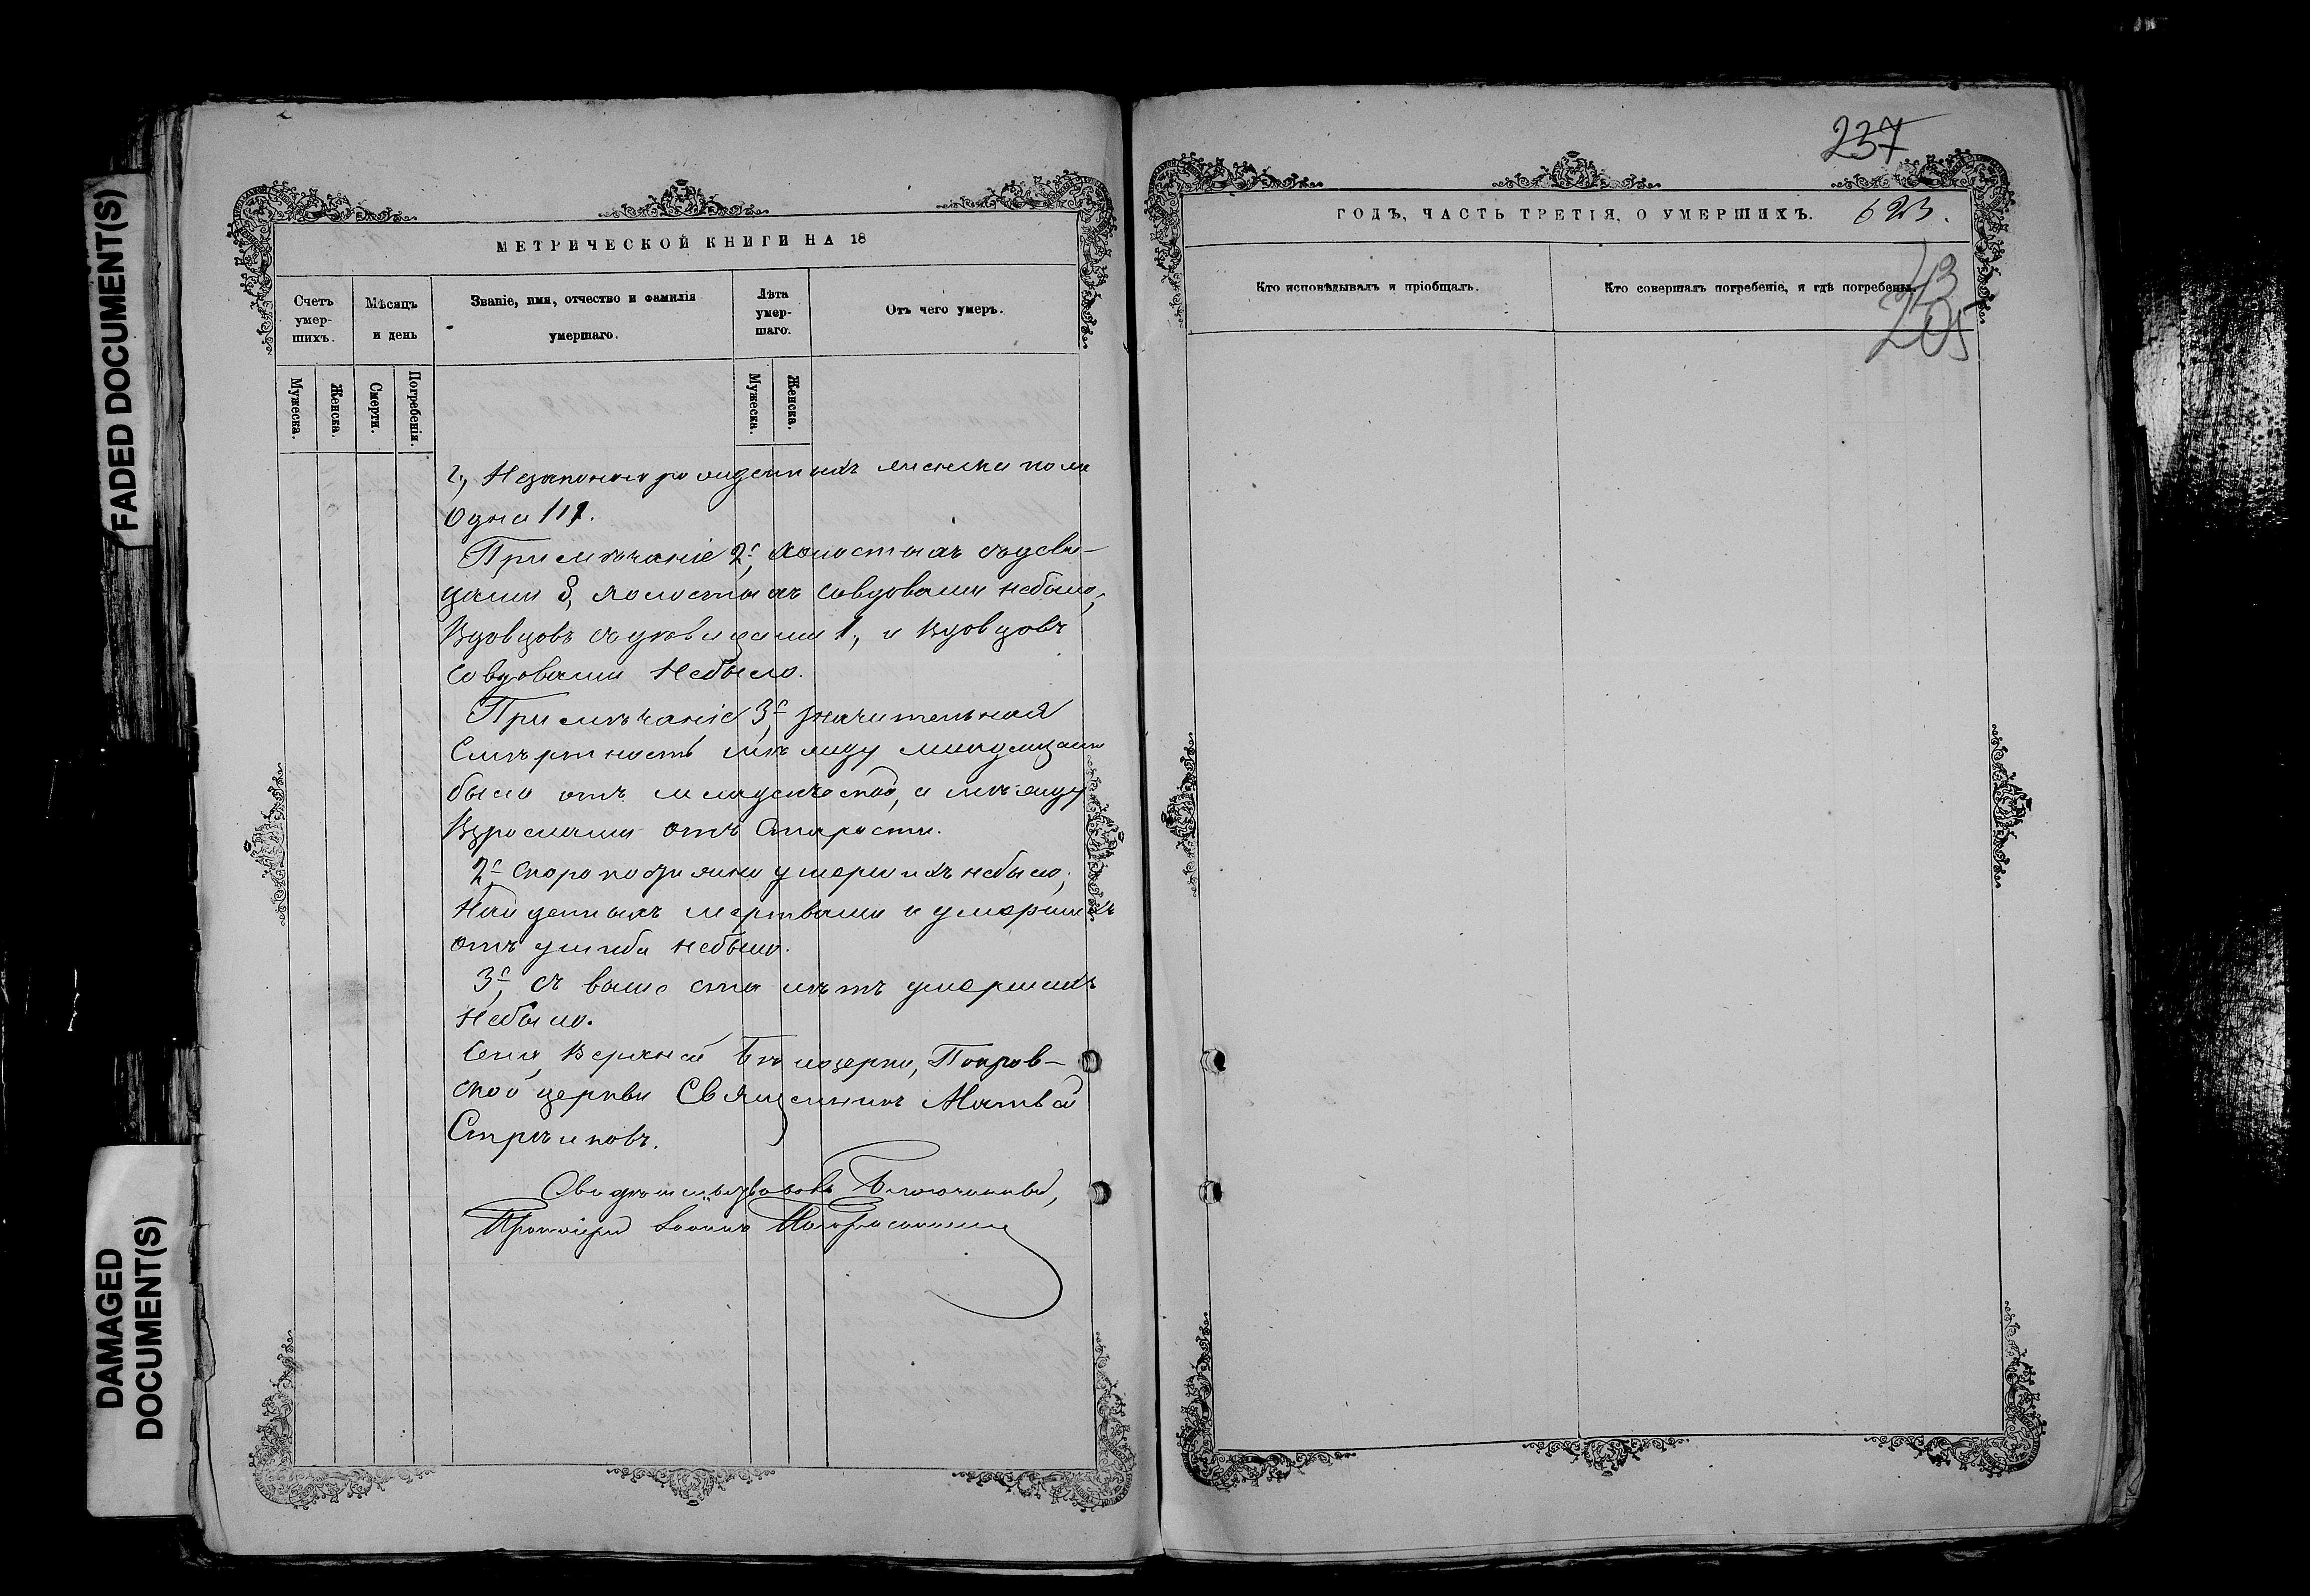 FADED DOCUMENT(S)
DAMAGED
DOCUMENT(S)
МЕТРИЧЕСКОЙ КНИГИ НА 18
Счетъ умершихъ.
Мѣсяцъ и день
Званіе, имя, отчество и фамилія умершаго.
Лѣта умершаго.
Отъ чего умеръ.
Мужеска.
Женска.
Смерти.
Погребенія.
Мужеска.
Женска.
2, Незаконнорожденныхъ женска пола
Одна /1/.
Примѣчаніе 2е, холостыхъ съдеви-
цами 8, холостыхъ совдовами небыло;
Вдовцовъ съдѣвицами 1, и Вдовцовъ
Совдовами Небыло.
Примѣчаніе 3е, значительная
Смѣртность мѣжду младенцами
была отъ младенческой, а мѣжду
Взрослыми отъ Старости.
2е Скоропостижно умершихъ небыло;
Найденныхъ мертвыми и умершихъ
отъ ушиба небыло.
3е, Съ выше ста лѣтъ умершихъ
Небыло.
Села, Верхней Бѣлозерки, Покров-
ской церкви Священникъ Матвѣй
Стрѣлковъ.
Свидѣтельствовалъ Благочинный,
Протоіерей Іоаннъ
237
ГОДЪ, ЧАСТЬ ТРЕТІЯ, О УМЕРШИХЪ.
623.
Кто исповѣдывалъ и пріобщалъ.
Кто совершалъ погребеніе, и гдѣ погребены.
13
205